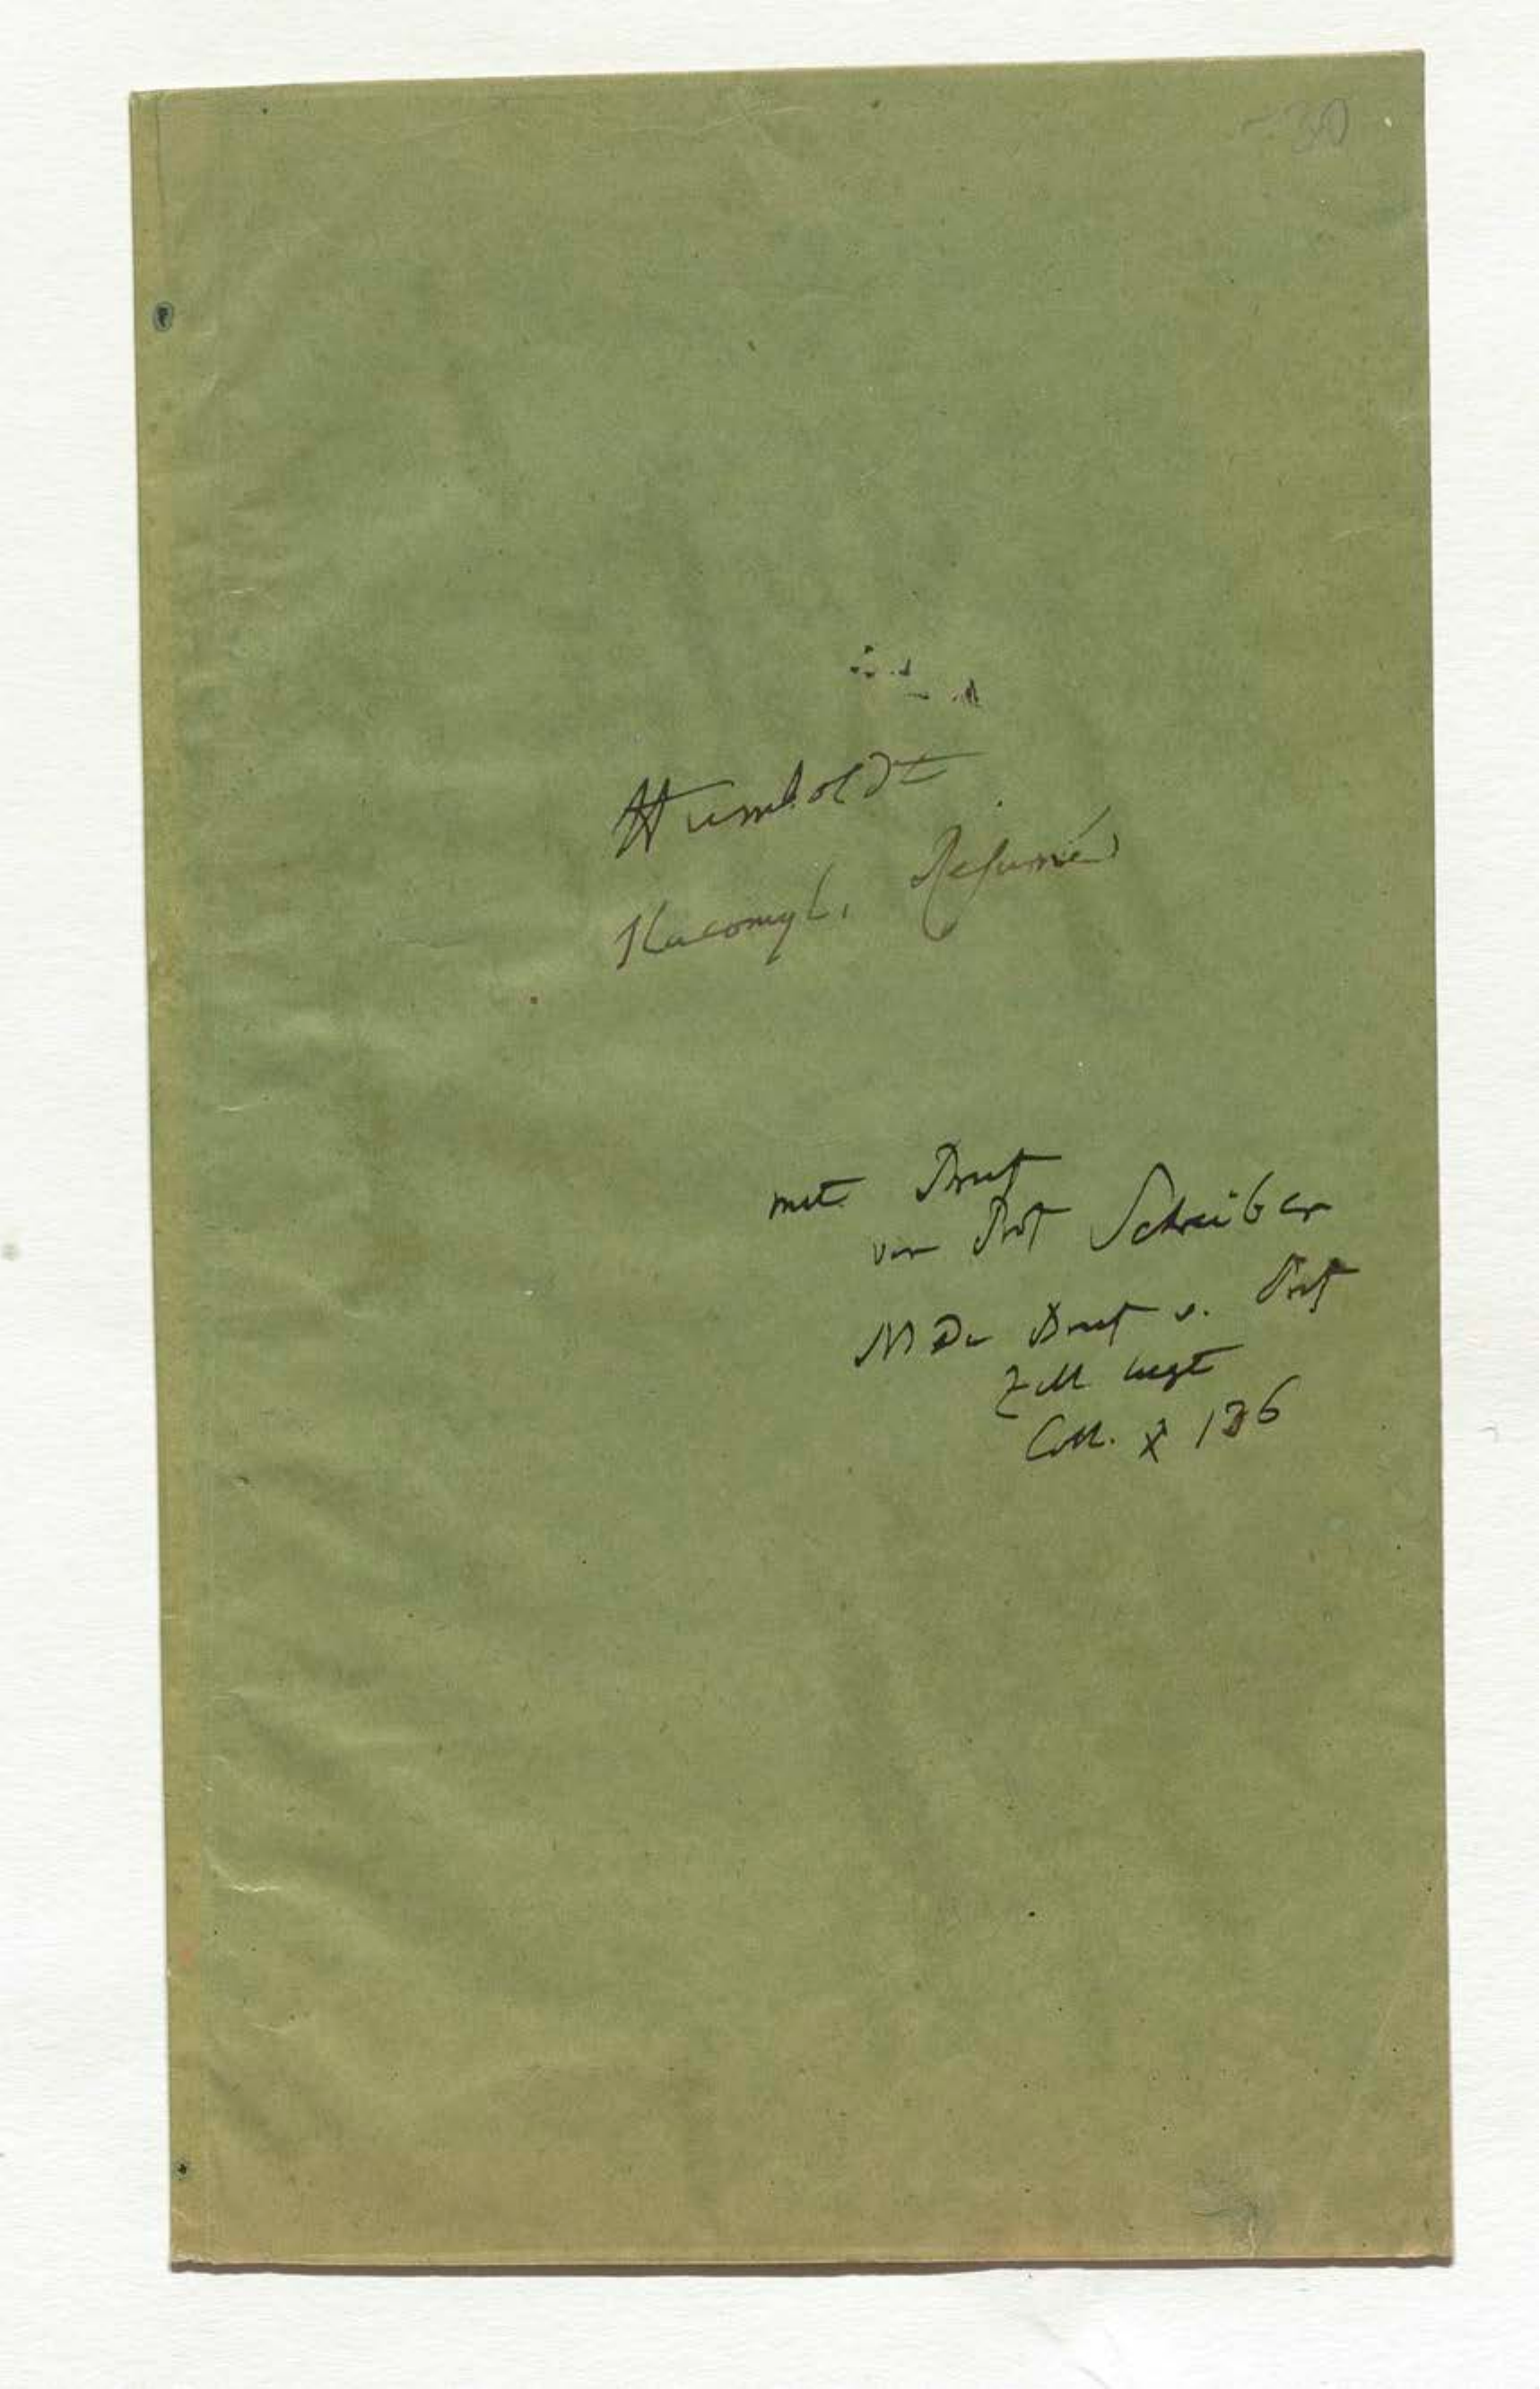 30
Humboldt
Resumé
mit Brief
von Prof Schreiber
NB Der Brief v. Prof
Zell liegt
Coll. X 136